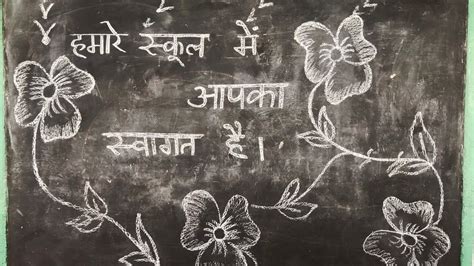 हमारे स्कूल में
आपका
स्वागत है।